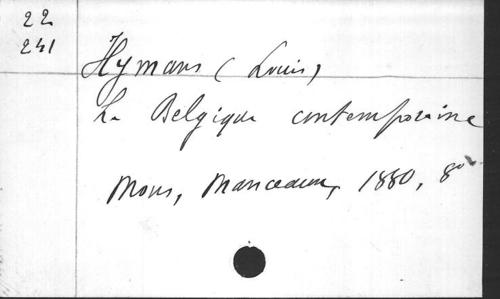 22
241
Hymans (Louis)
La Belgique contemporaine
Mons, Manceaux, 1880, 8°